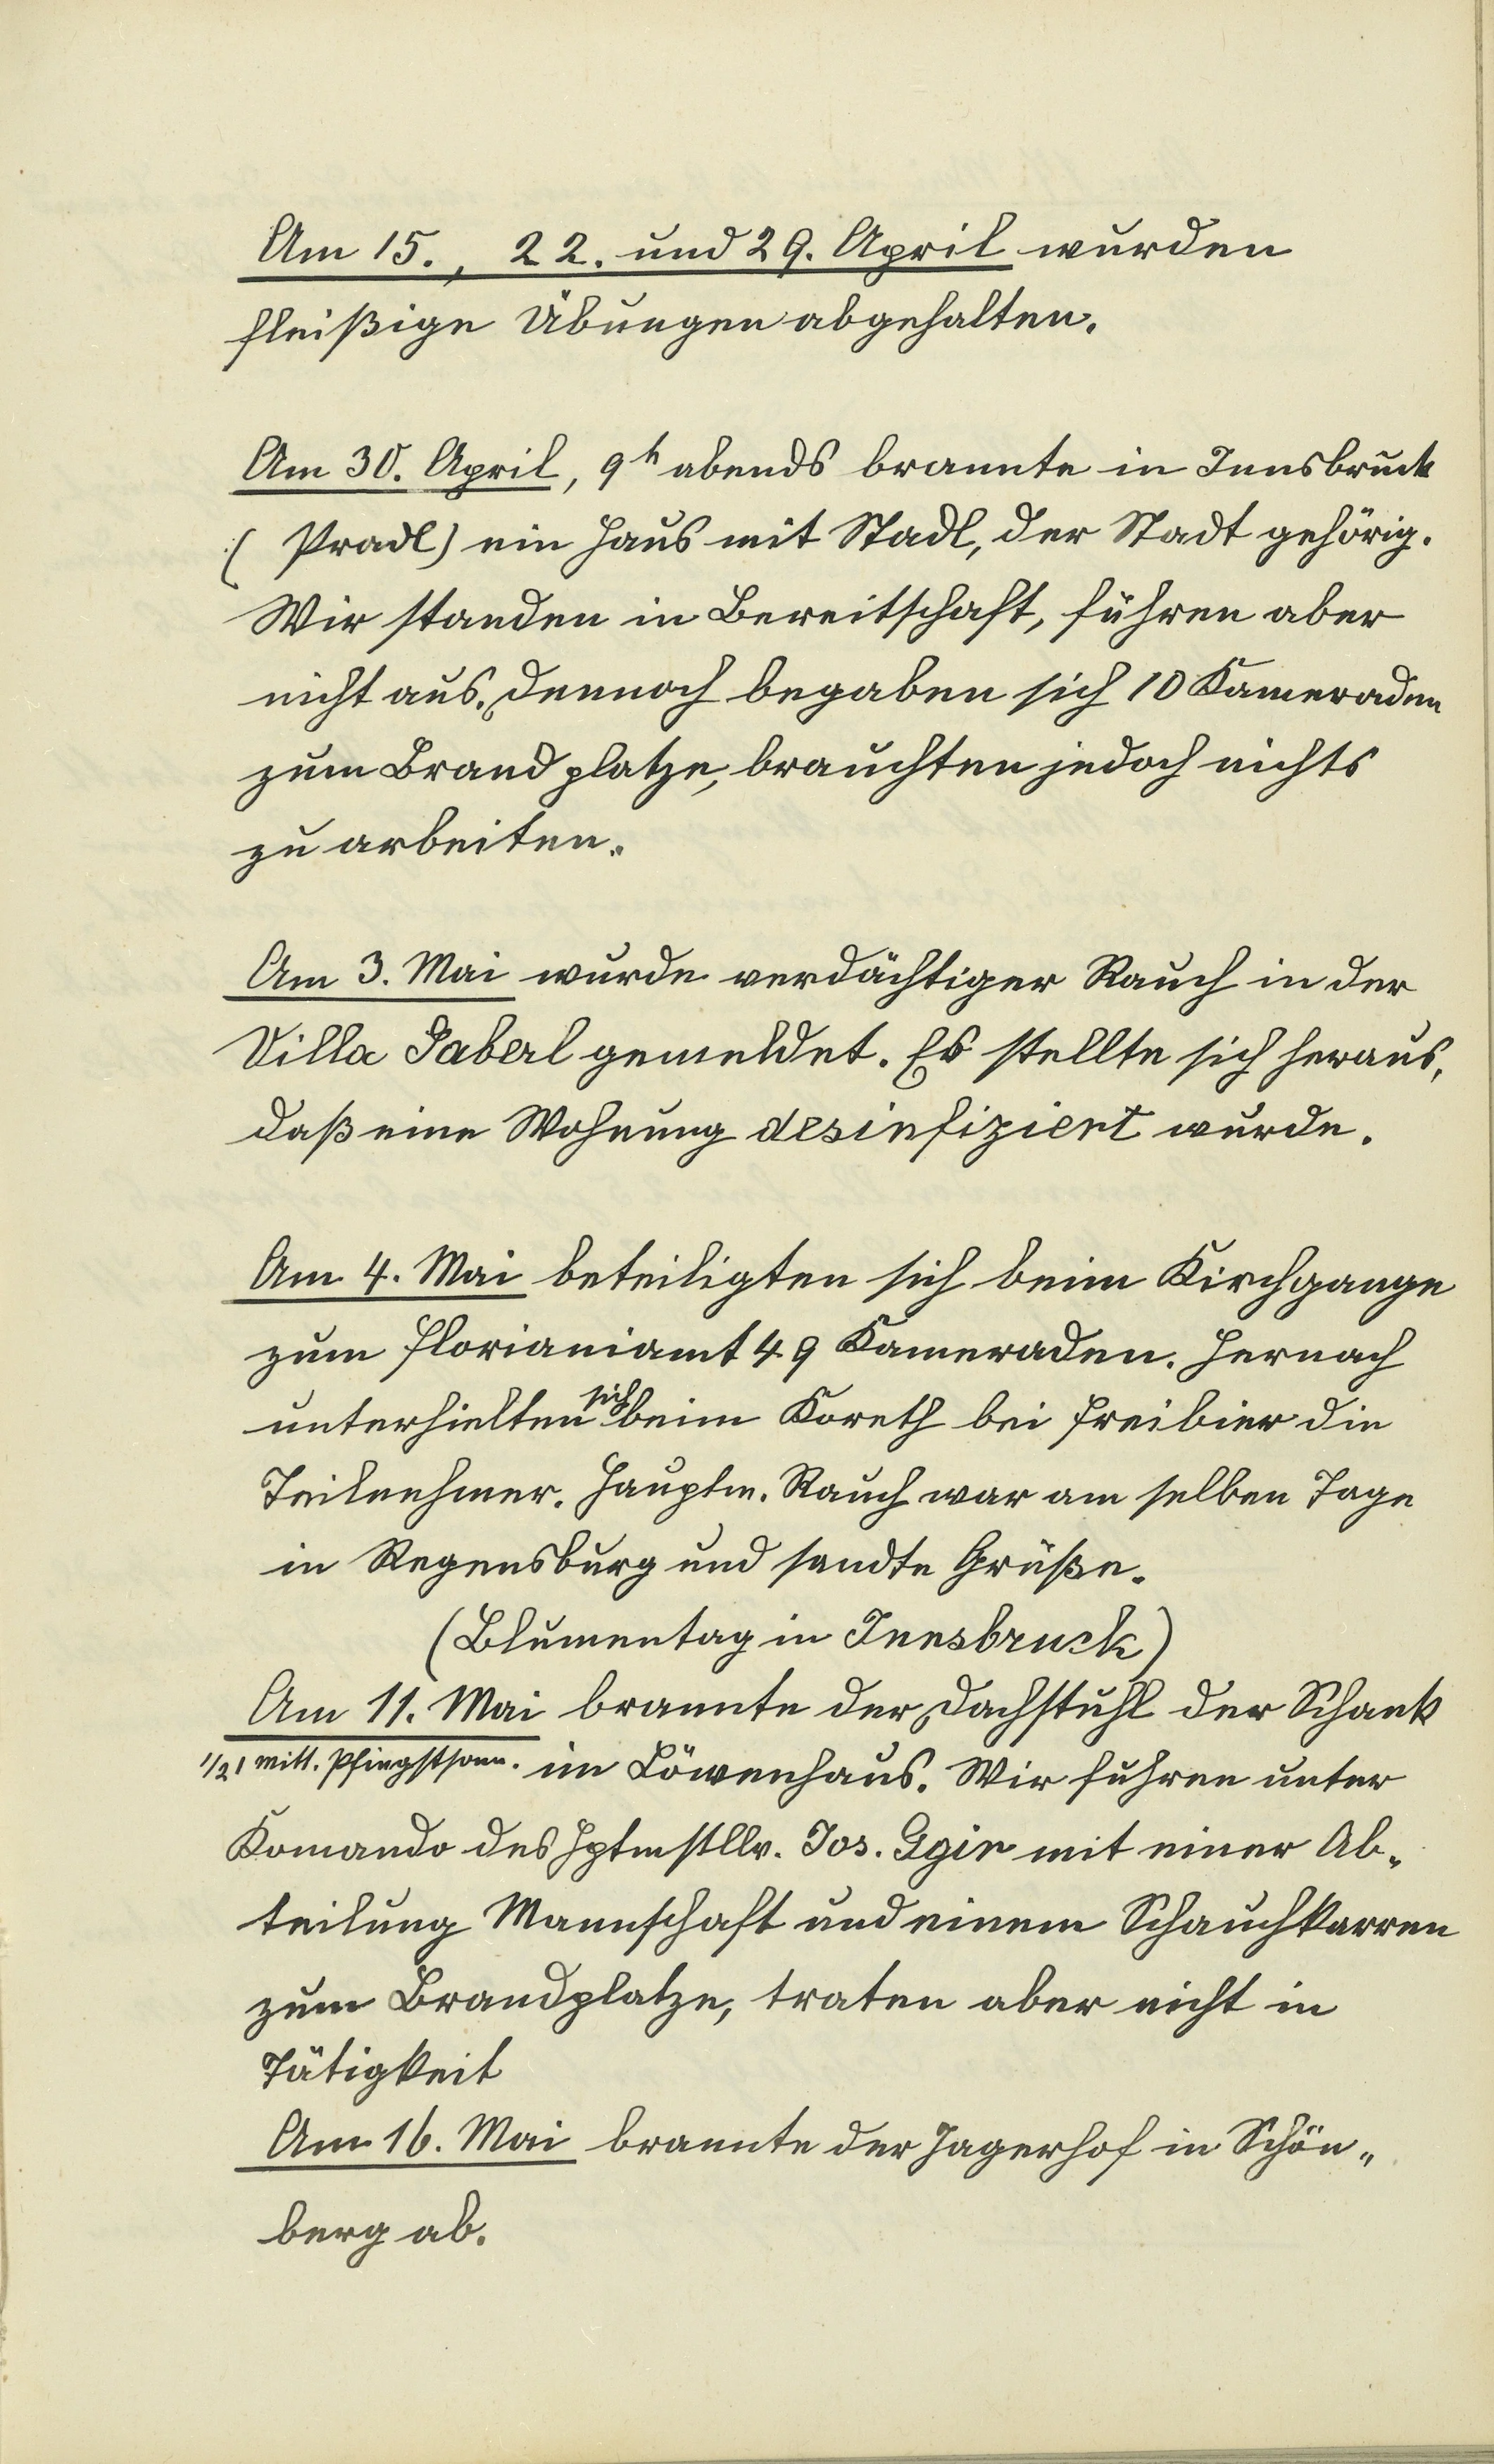 Am 15., 22. und 29. April wurden
fleißige Übungen abgehalten.
Am 30. April, 9h abends brannte in Innsbruck
( Pradl) ein Haus mit Stadl, der Stadt gehörig.
Wir standen in Bereitschaft, führen aber
nicht aus. Dennoch begaben sich 10 Kameraden
zum Brandplatze, brauchten jedoch nichts
zu arbeiten.
Am 3. Mai wurde verdächtiger Rauch in der
Villa Saberl gemeldet. Es stellte sich heraus,
daß eine Wohnung desinfiziert wurde.
Am 4. Mai beteiligten sich beim Kirchgange
zum Florianiamt 49 Kameraden. Hernach
unterhielten sich beim Koreth bei Freibier die
Teilnehmer. Hauptm. Rauch war am selben Tage
in Regensburg und sandte Grüße.
(Blumentag in Innsbruck)
Am 11. Mai brannte der Dachstuhl der Schank
1/21 mitt. Pfingstsonn. im Löwenhaus. Wir fuhren unter
Komando des Hptmstllv. Jos. Egir mit einer Ab-
teilung Mannschaft und einem Schauchkarren
zum Brandplatze, traten aber nicht in
Tätigkeit
Am 16. Mai brannte der Jagerhof in Schön-
berg ab.